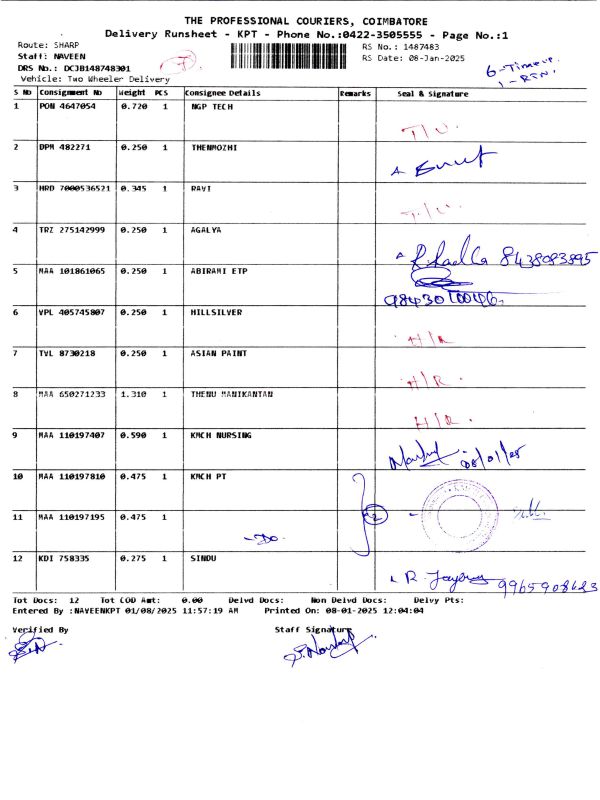 THE PROFESSIONAL COURIERS, COIMBATORE
Delivery Runsheet - KPT - Phone No.:0422-3505555 - Page No.:1
Route: SHARP
RS No.: 1487483
Staff: NAVEEN
RS Date: 08-Jan-2025
DRS No.: DCJB148748301
Vehicle: Two Wheeler Delivery
6-Timeup.
1-RTN.
S No Consignment No Weight PCS Consignee Details Remarks Seal & Signature
1 PON 4647054 0.720 1 NGP TECH
T/U.
2 DPM 482271 0.250 1 THENMOZHI
3 HRD 7000536521 0.345 1 RAVI
T/U.
4 TRZ 275142999 0.250 1 AGALYA
8438093895
5 MAA 101861065 0.250 1 ABIRAMI ETP
9843010046
6 VPL 405745807 0.250 1 HILLSILVER
H/R
7 TVL 8730218 0.250 1 ASIAN PAINT
H/R.
8 MAA 650271233 1.310 1 THENU MANIKANTAN
H/R.
9 MAA 110197407 0.590 1 KMCH NURSING
08/01/25
10 MAA 110197810 0.475 1 KMCH PT
2
11 MAA 110197195 0.475 1
-Do-
12 KDI 758335 0.275 1 SINDU
9965908623
Tot Docs: 12 Tot COD Amt: 0.00 Delvd Docs: Non Delvd Docs: Delvy Pts:
Entered By :NAVEENKPT 01/08/2025 11:57:19 AM Printed On: 08-01-2025 12:04:04
Verified By
Staff Signature